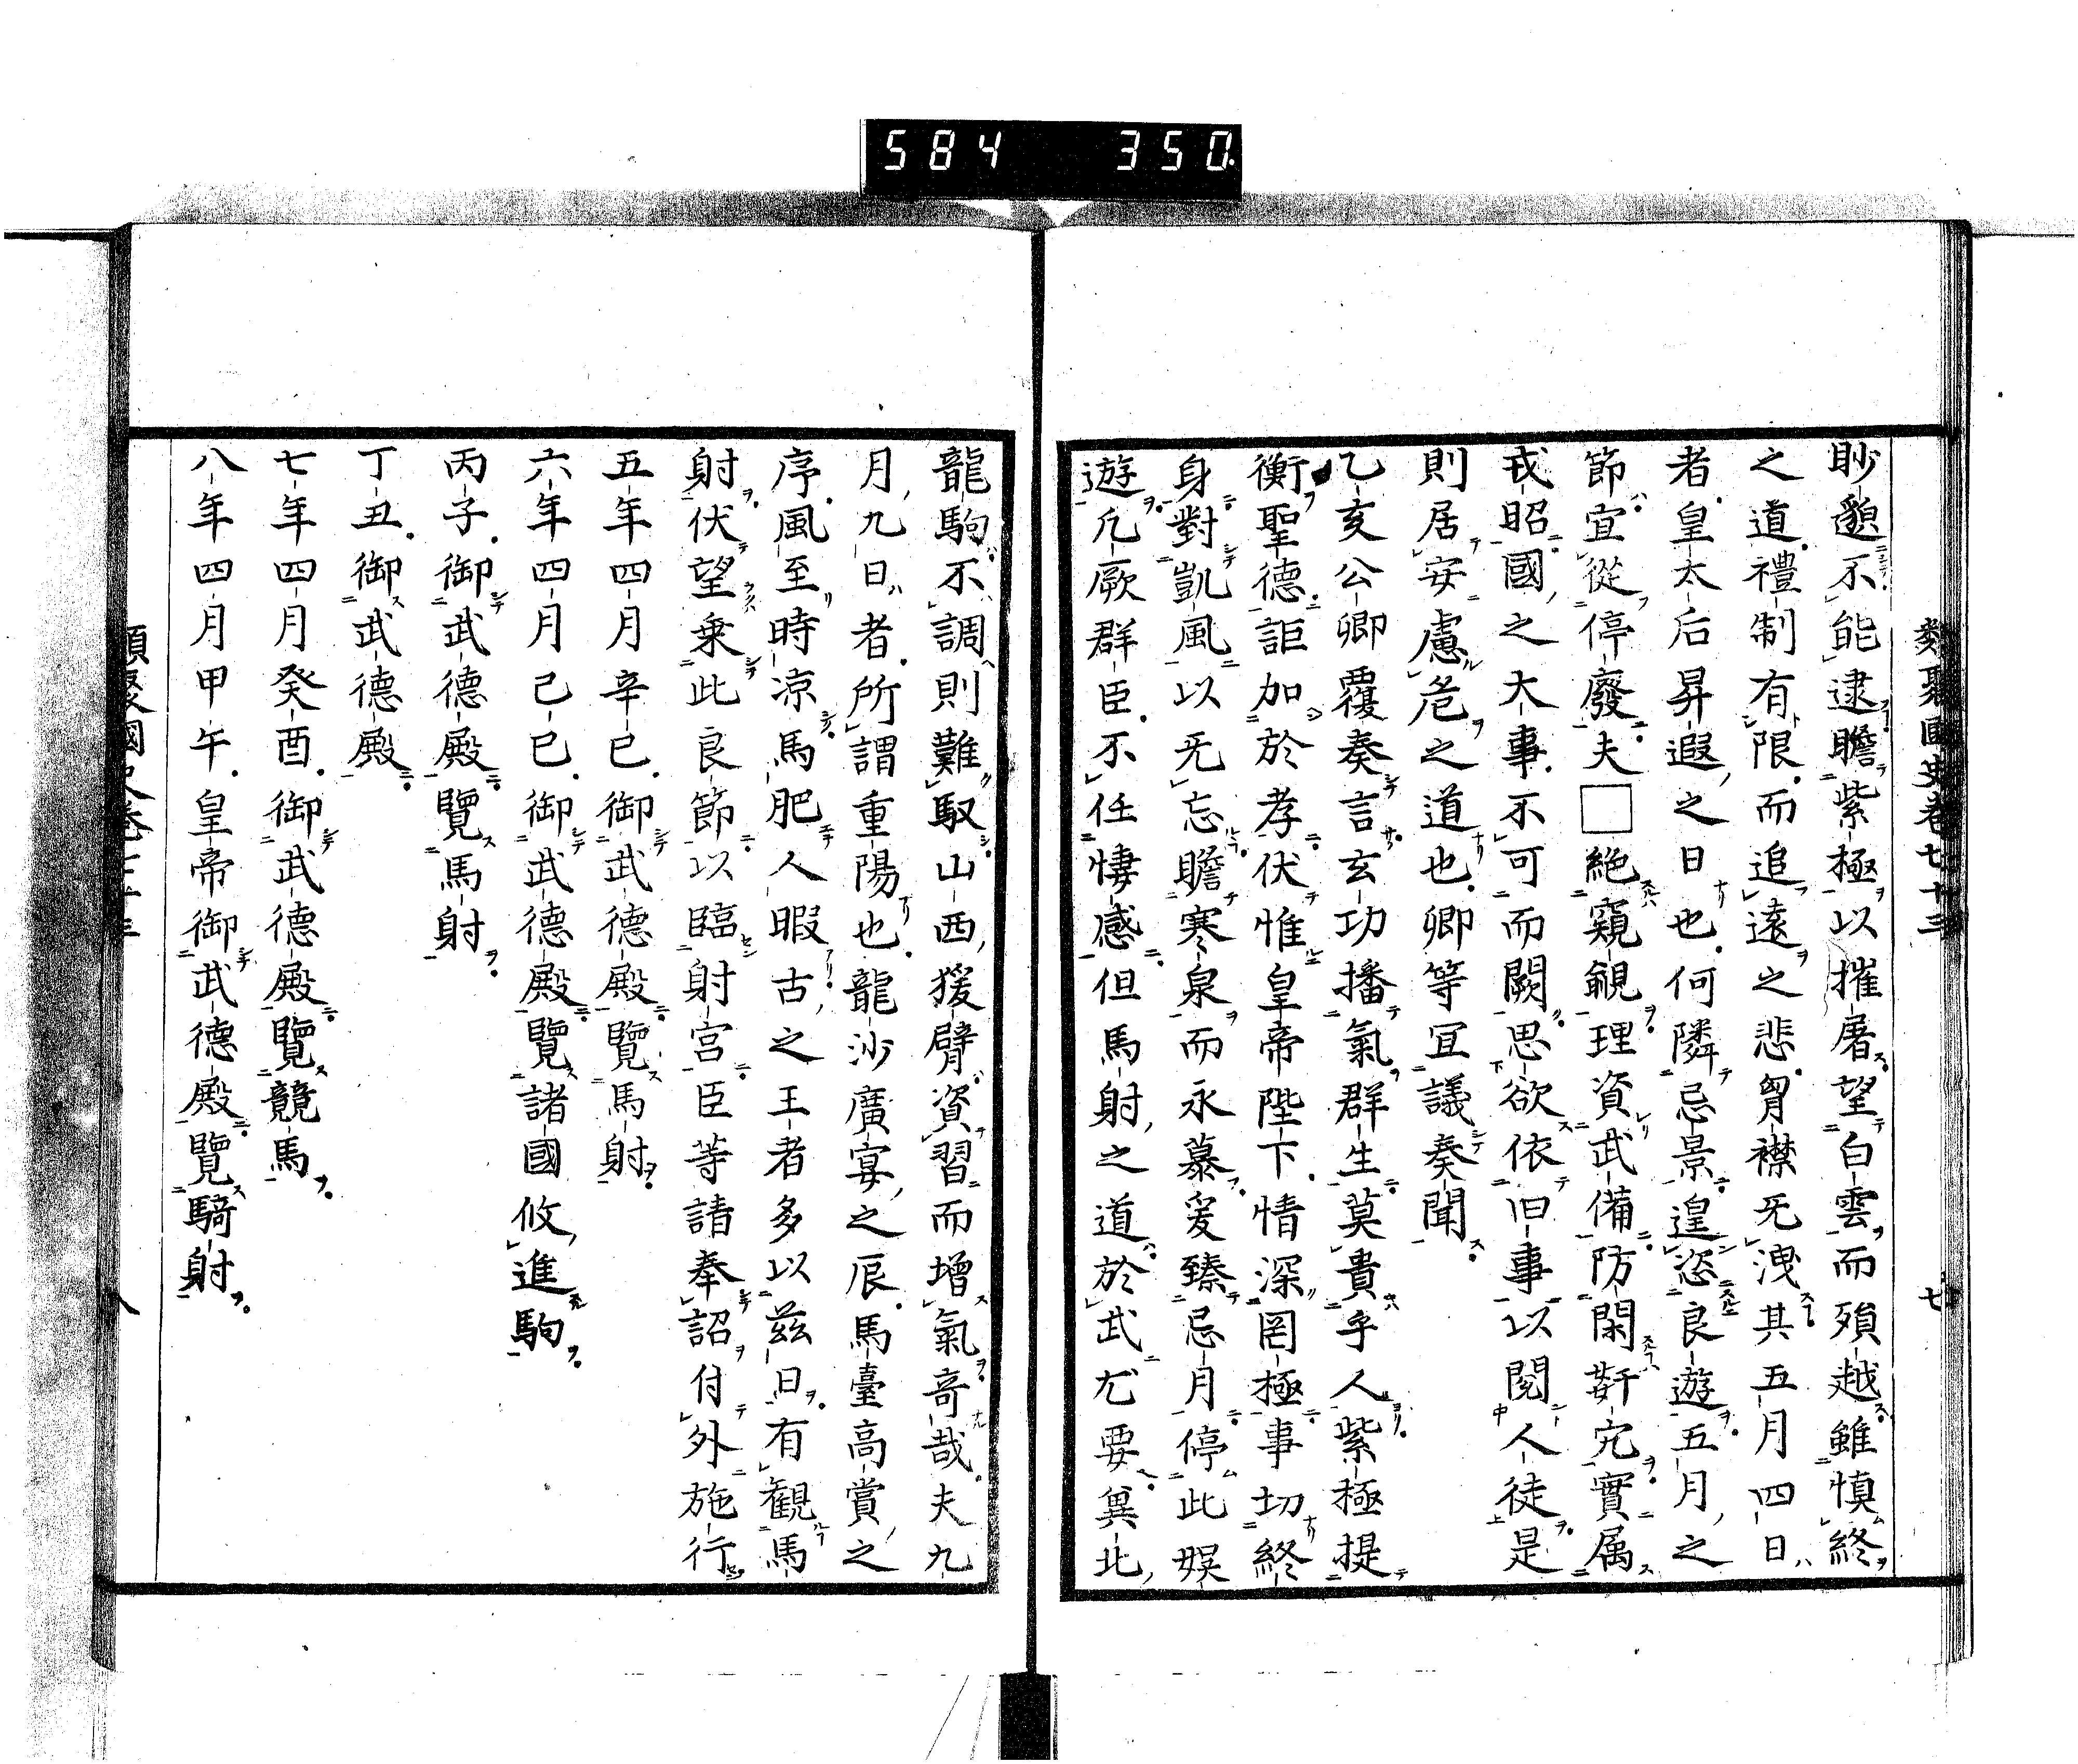 584 350
類聚國史卷七十三 七
眇邈不能逮瞻紫極以摧屠望白雲而殞越雖慎終
之道禮制有限而追遠之悲胷襟旡洩其五月四日
者皇太后昇遐之日也何隣忌景遑恣良遊五月之
節宜從停廢夫□絶窺覦理資武備防閑姧宄實属
戎昭國之大事不可而闕思欲依旧事以閲人徒是
則居安慮危之道也卿等宜議奏聞
乙亥公卿覆奏言玄功播氣群生莫貴乎人紫極提
衡聖德詎加於孝伏惟皇帝陛下情深罔極事切終
身對凱風以旡忘瞻寒泉而永慕爰臻忌月停此娯
遊凢厥群臣不任悽感但馬射之道於武尤要兾北
龍駒不調則難馭山西猨臂資習而増氣哥哉夫九
月九日者所謂重陽也龍沙廣宴之辰馬臺高賞之
序風至時凉馬肥人暇古之王者多以兹日有観馬
射伏望乗此良節以臨射宫臣等請奉詔付外施行
五年四月辛巳御武德殿覽馬射
六年四月己巳御武德殿覽諸國攸進駒
丙子御武德殿覽馬射
丁丑御武德殿
七年四月癸酉御武德殿覽競馬
八年四月甲午皇帝御武德殿覽騎射
類聚國史卷七十三 八